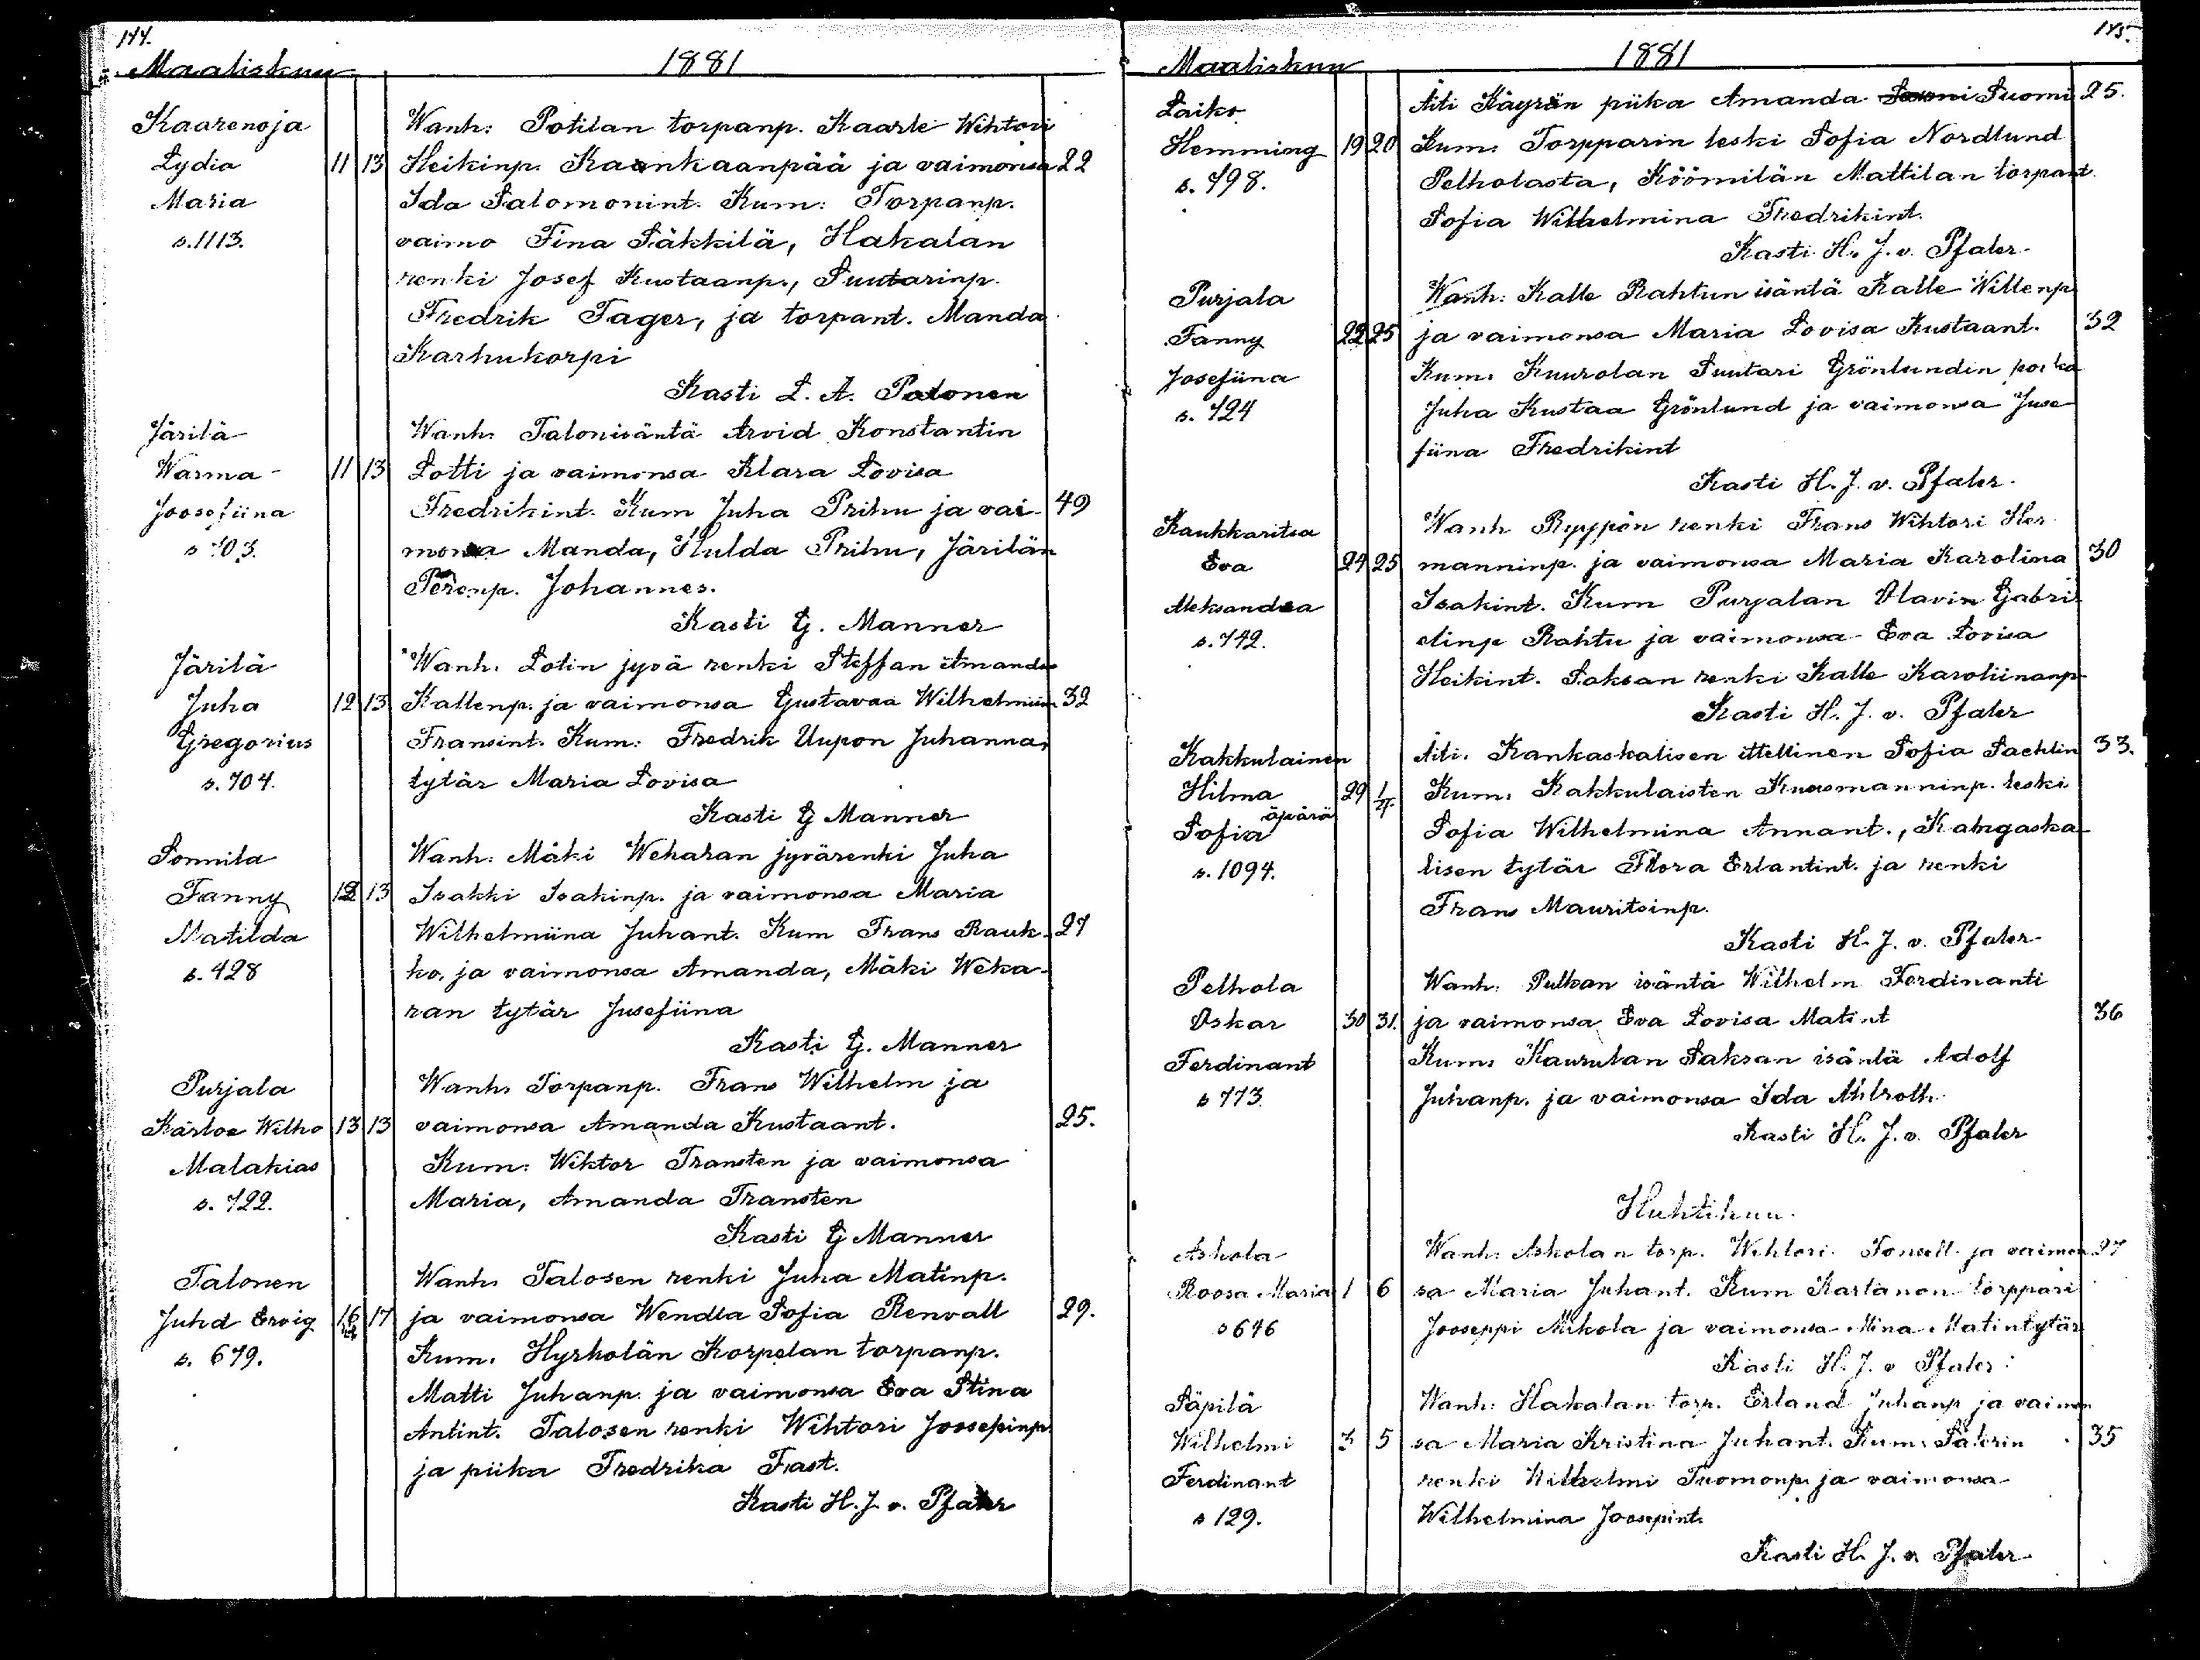 144.
Maaliskuu 1881
Kaarenoja Wanh: Potilan torpanp. Kaarle Wihtori
Lydia 11 13 Heikinp. Kaankaanpää ja vaimonsa 22
Maria Ida Salomonint. Kum: Torpanp.
s. 1113. vaimo Fina Säkkilä, Hakalan
renki Josef Kustaanp., Suutarinp.
Fredrik Tager, ja torpant. Manda
Karhukorpi
Kasti L. A. Patonen
Järilä Wanh. Talonisäntä Arvid Konstantin
Warma 11 13 Lotti ja vaimonsa Klara Lovisa
Joosefiina Fredrikint. Kum Juha Prihu ja vai- 49
s 703. monsa Manda, Hulda Prihu, Järilän
Perenp. Johannes.
Kasti G. Manner
Järilä Wanh. Lotin jyvä renki Steffan Amandus
Juha 12 13 Kallenp. ja vaimonsa Gustavaa Wilhelmiin 32
Gregorius Fransint. Kum: Fredrik Uupon Juhannan
s. 704. tytär Maria Lovisa
Kasti G Manner
Sonnila Wanh: Mäki Wekaran jyvärenki Juha
Fanny 12 13 Isakki Isakinp. ja vaimonsa Maria
Matilda Wilhelmiina Juhant. Kum Frans Rauk- 27
s. 428 ko, ja vaimonsa Amanda, Mäki Weka-
ran tytär Jusefiina
Kasti G. Manner
Purjala Wanh. Torpanp. Frans Wilhelm ja
Kårloe Wilho 13 13 vaimonsa Amanda Kustaant. 25.
Malakias Kum: Wiktor Transten ja vaimonsa
s. 722. Maria, Amanda Transten
Kasti G Manner
Talonen Wanh. Talosen renki Juha Matinp.
Juhd Ervig 16 17 ja vaimonsa Wendla Sofia Renvall 29.
s. 679. Kum. Hyrkolän Korpelan torpanp.
Matti Juhanp. ja vaimonsa Eva Stina
Antint. Talosen renki Wihtori Joosepinp
ja piika Fredrika Fast.
Kasti H. J. v. Pfaler
145.
Maaliskuu 1881
Laiko Äiti Käyrän piika Amanda Suomi 25.
Hemming 19 20 Kum. Torpparin leski Sofia Nordlund
s. 798. Pelholasta, Köömilän Mattilan torpant.
Sofia Wilhelmina Fredrikint.
Kasti H. J. v. Pfaler
Purjala Wanh: Kalle Rahtun isäntä Kalle Willenp
Fanny 22 25 ja vaimonsa Maria Lovisa Kustaant. 32
Josefiina Kum. Kuurolan Suutari Grönlundin poika
s. 724 Juha Kustaa Grönlund ja vaimonsa Juse
fiina Fredrikint
Kasti H. J. v. Pfaler.
Kaukkaritsa Wanh Ryppön renki Frans Wihtori Her
Eva 24 25 manninp. ja vaimonsa Maria Karolina 30
Aleksandra Isakint. Kum Purjalan Olavin Gabri
s. 742. elinp Rahtu ja vaimonsa Eva Lovisa
Heikint. Saksan renki Kalle Karoliinanp
Kasti H. J. v. Pfaler
Kakkulainen Äiti. Kankaskalisen ittellinen Sofia Sachlin 33.
Hilma 29 1/4. Kum. Kakkulaisten Kuusmanninp. leski
äpärä
Sofia Sofia Wilhelmina Annant., Kangaska
s. 1094. lisen tytär Flora Erlantint. ja renki
Frans Mauritsinp.
Kasti H. J. v. Pfaler
Pelhola Wanh: Pulkan isäntä Wilhelm Ferdinanti
Oskar 30 31. ja vaimonsa Eva Lovisa Matint 36
Ferdinant Kum. Kaurulan Saksan isäntä Adolf
s 773. Juhanp. ja vaimonsa Ida Ahlroth.
Kasti H. J. v. Pfaler
Huhtikuu.
Askola Wanh: Askolan torp. Wihtori ja vaimon 27
Roosa Maria 1 6 sa Maria Juhant. Kum Kartanon torppari
s 646 Jooseppi Mikola ja vaimonsa Mina Matintytär
Kasti H. J. v Pfaler
Säpilä Wanh: Hakalan torp. Erland Juhanp ja vaimon
Wilhelmi 3 5 sa Maria Kristina Juhant. Kum. Säterin 35
Ferdinant renki Wilhelmi Tuomonp. ja vaimonsa
s 129. Wilhelmina Joosepint.
Kasti H. J. v. Pfaler